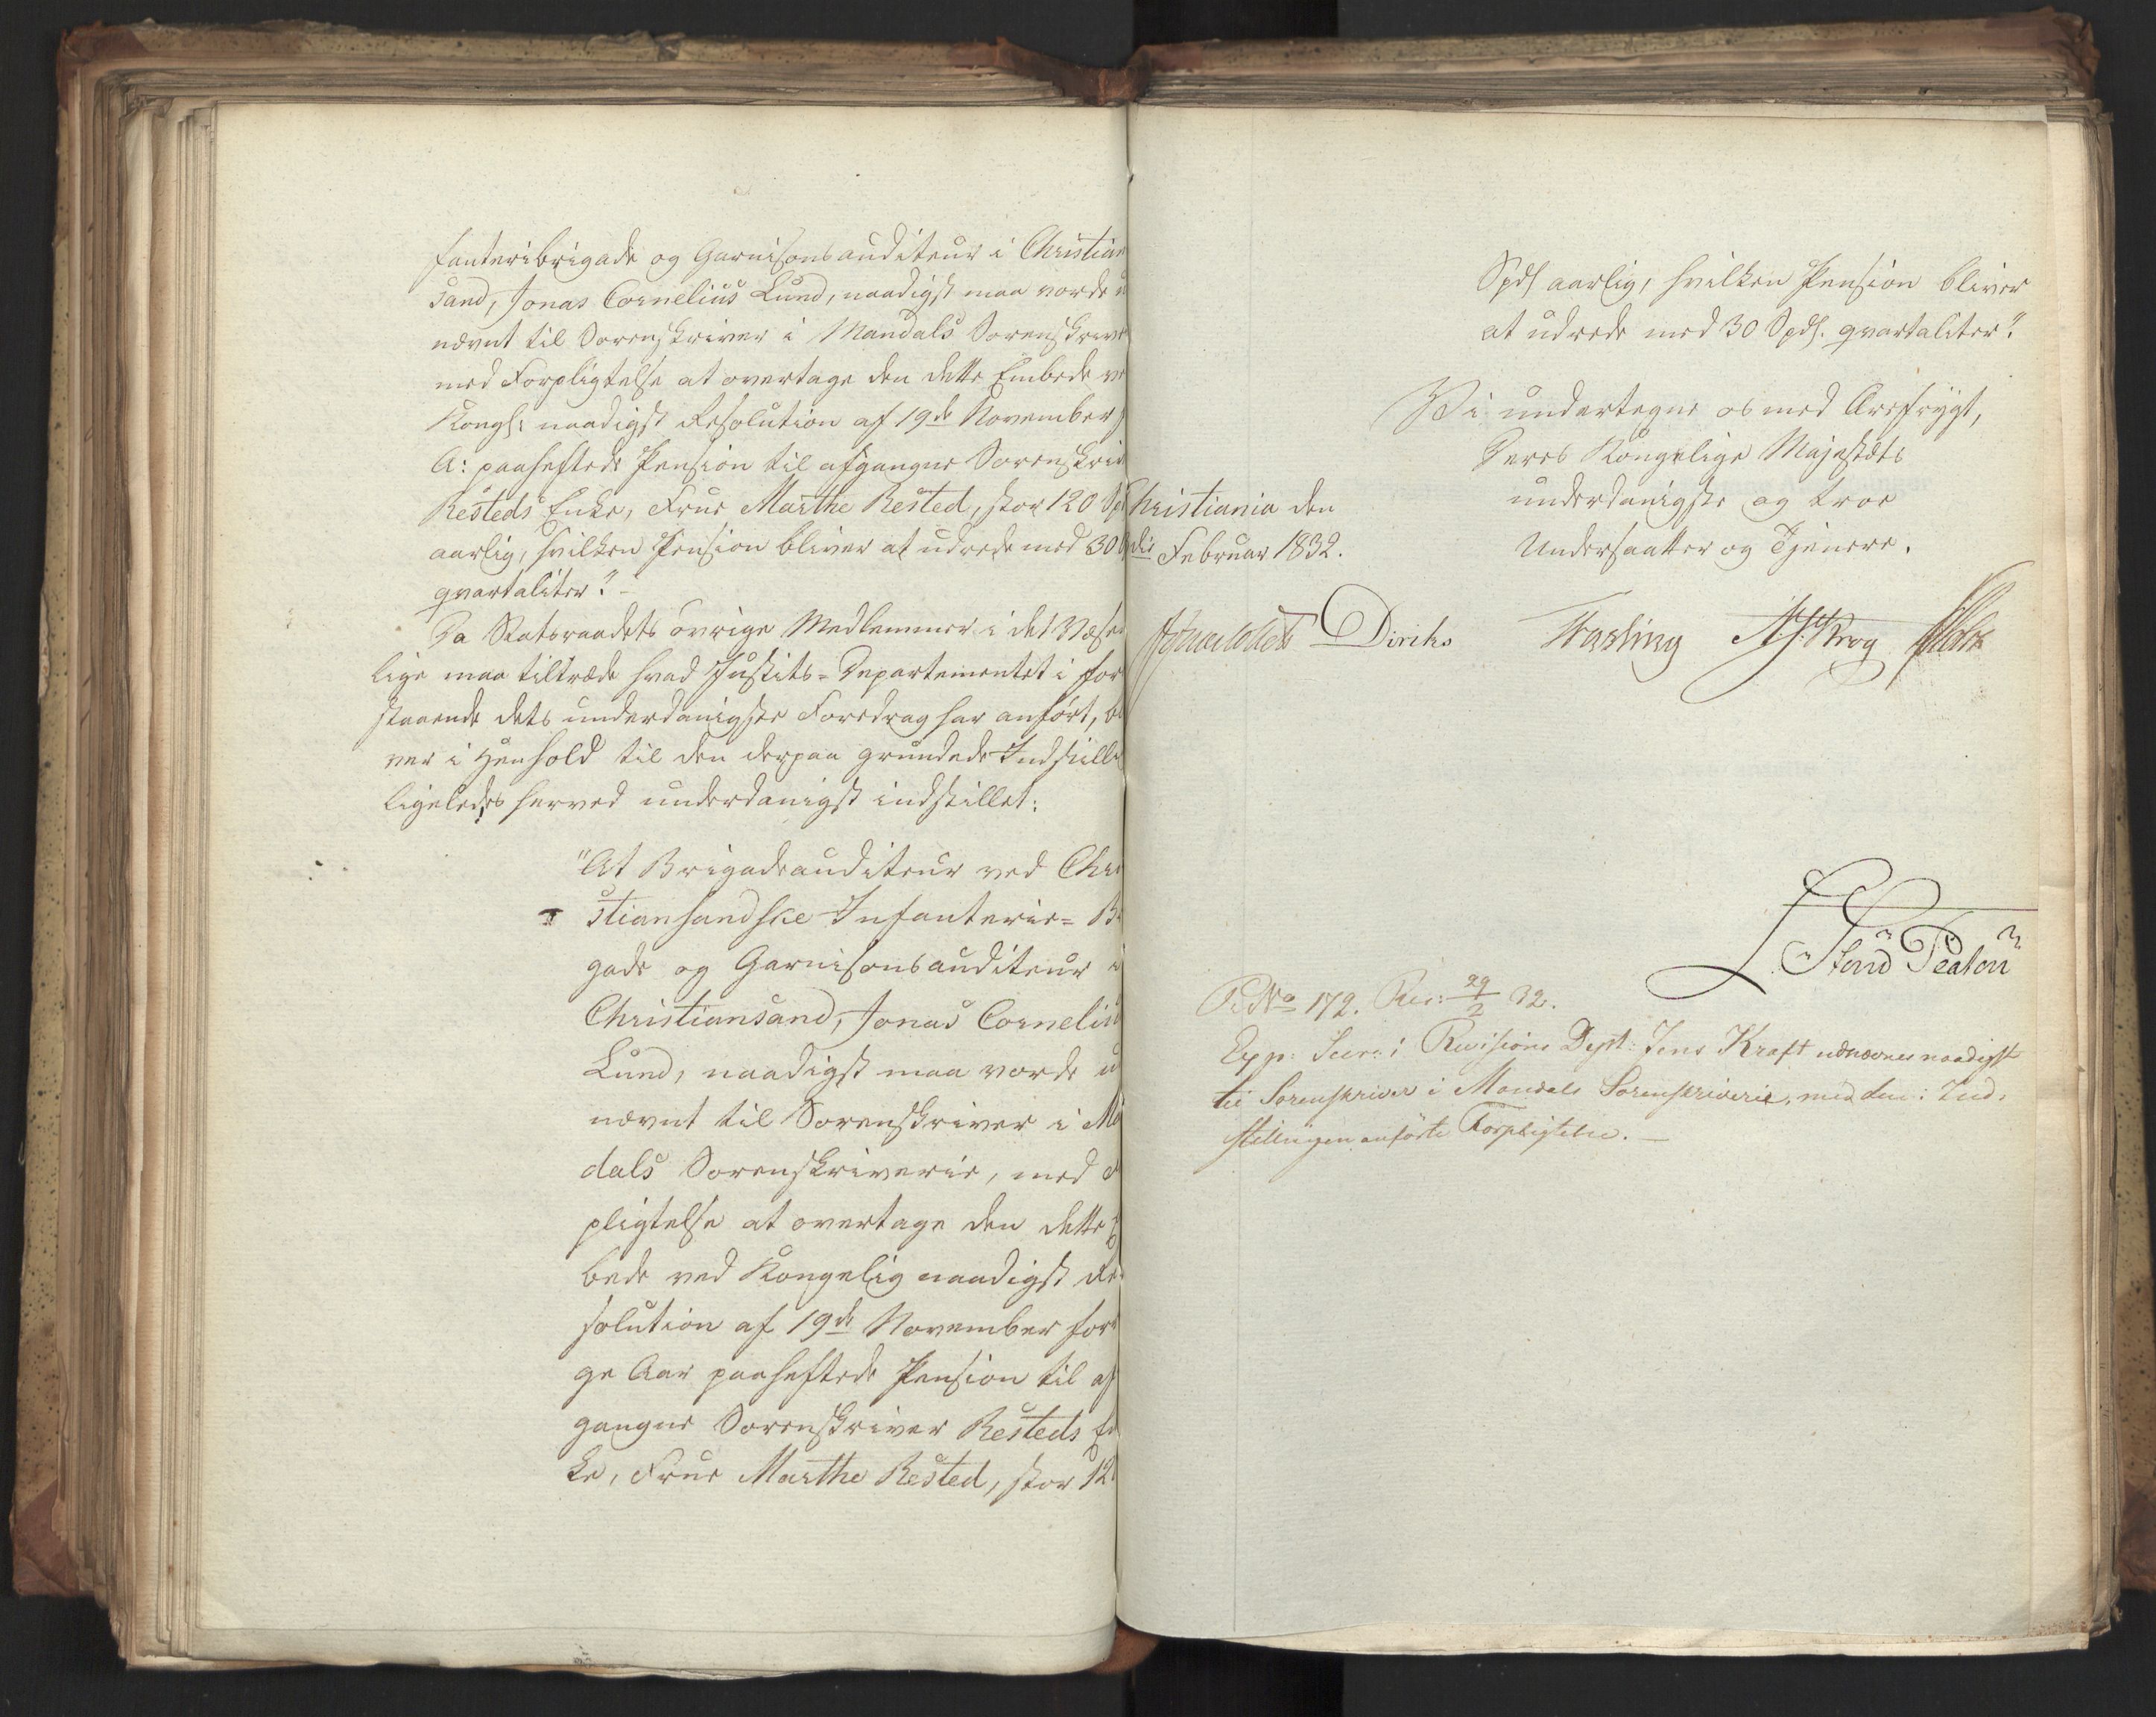 fanteribrigade og Garnisonsauditeur i Christian
sand, Jonas Cornelius Lund, naadigst maa vorde u
nævnt til Sorenskriver i Mandals Sorenskrive
med Forpligtelse at overtage den dette Embede ve
Kongl: naadigst Resolution af 19de November f
A: paaheftede Pension til afgangne Sorenskriv
Resteds Enke, Frue Marthe Rested, stor 120 Sp
aarlig, hvilken Pension bliver at udrede med 30
qvartaliter". -
Da Statsraadets øvrige Medlemmer i det Væsen
lige maa tiltræde hvad Justits-Departementet i for
staaende dets underdanigste Foredrag har anført, bli
ver i Henhold til den derpaa grundede Indstille
ligeledes herved underdanigst indstillet:
"At Brigadeauditeur ved Chri
stiansandske Infanterie-B
gade og Garnisonsauditeur i
Christiansand, Jonas Cornelius
Lund, naadigst maa vorde u
nævnt til Sorenskriver i Ma
dals Sorenskriverie, med F
pligtelse at overtage den dette E
bede ved Kongelig naadigst Re
solution af 19de November forr
ge Aar paaheftede Pension til af
gangne Sorenskriver Resteds En
ke, Frue Marthe Rested, stor 12
Spdl aarlig, hvilken Pension bliver
at udrede med 30 Spdl. qvartaliter".
Vi undertegne os med Ærefrygt,
Deres Kongelige Majestæts
underdanigste og troe
Undersaatter og Tjenere.
Christiania den
die Februar 1832.
Diriks Fasting Krog
P. No 172. Res: 29/2 32.
Exp: Secr: i Revisions Dept: Jens Kraft udnævnes naadigst
til Sorenskriver i Mandals Sorenskriverie, med den i Ind-
stillingen anførte Forpligtelse. -